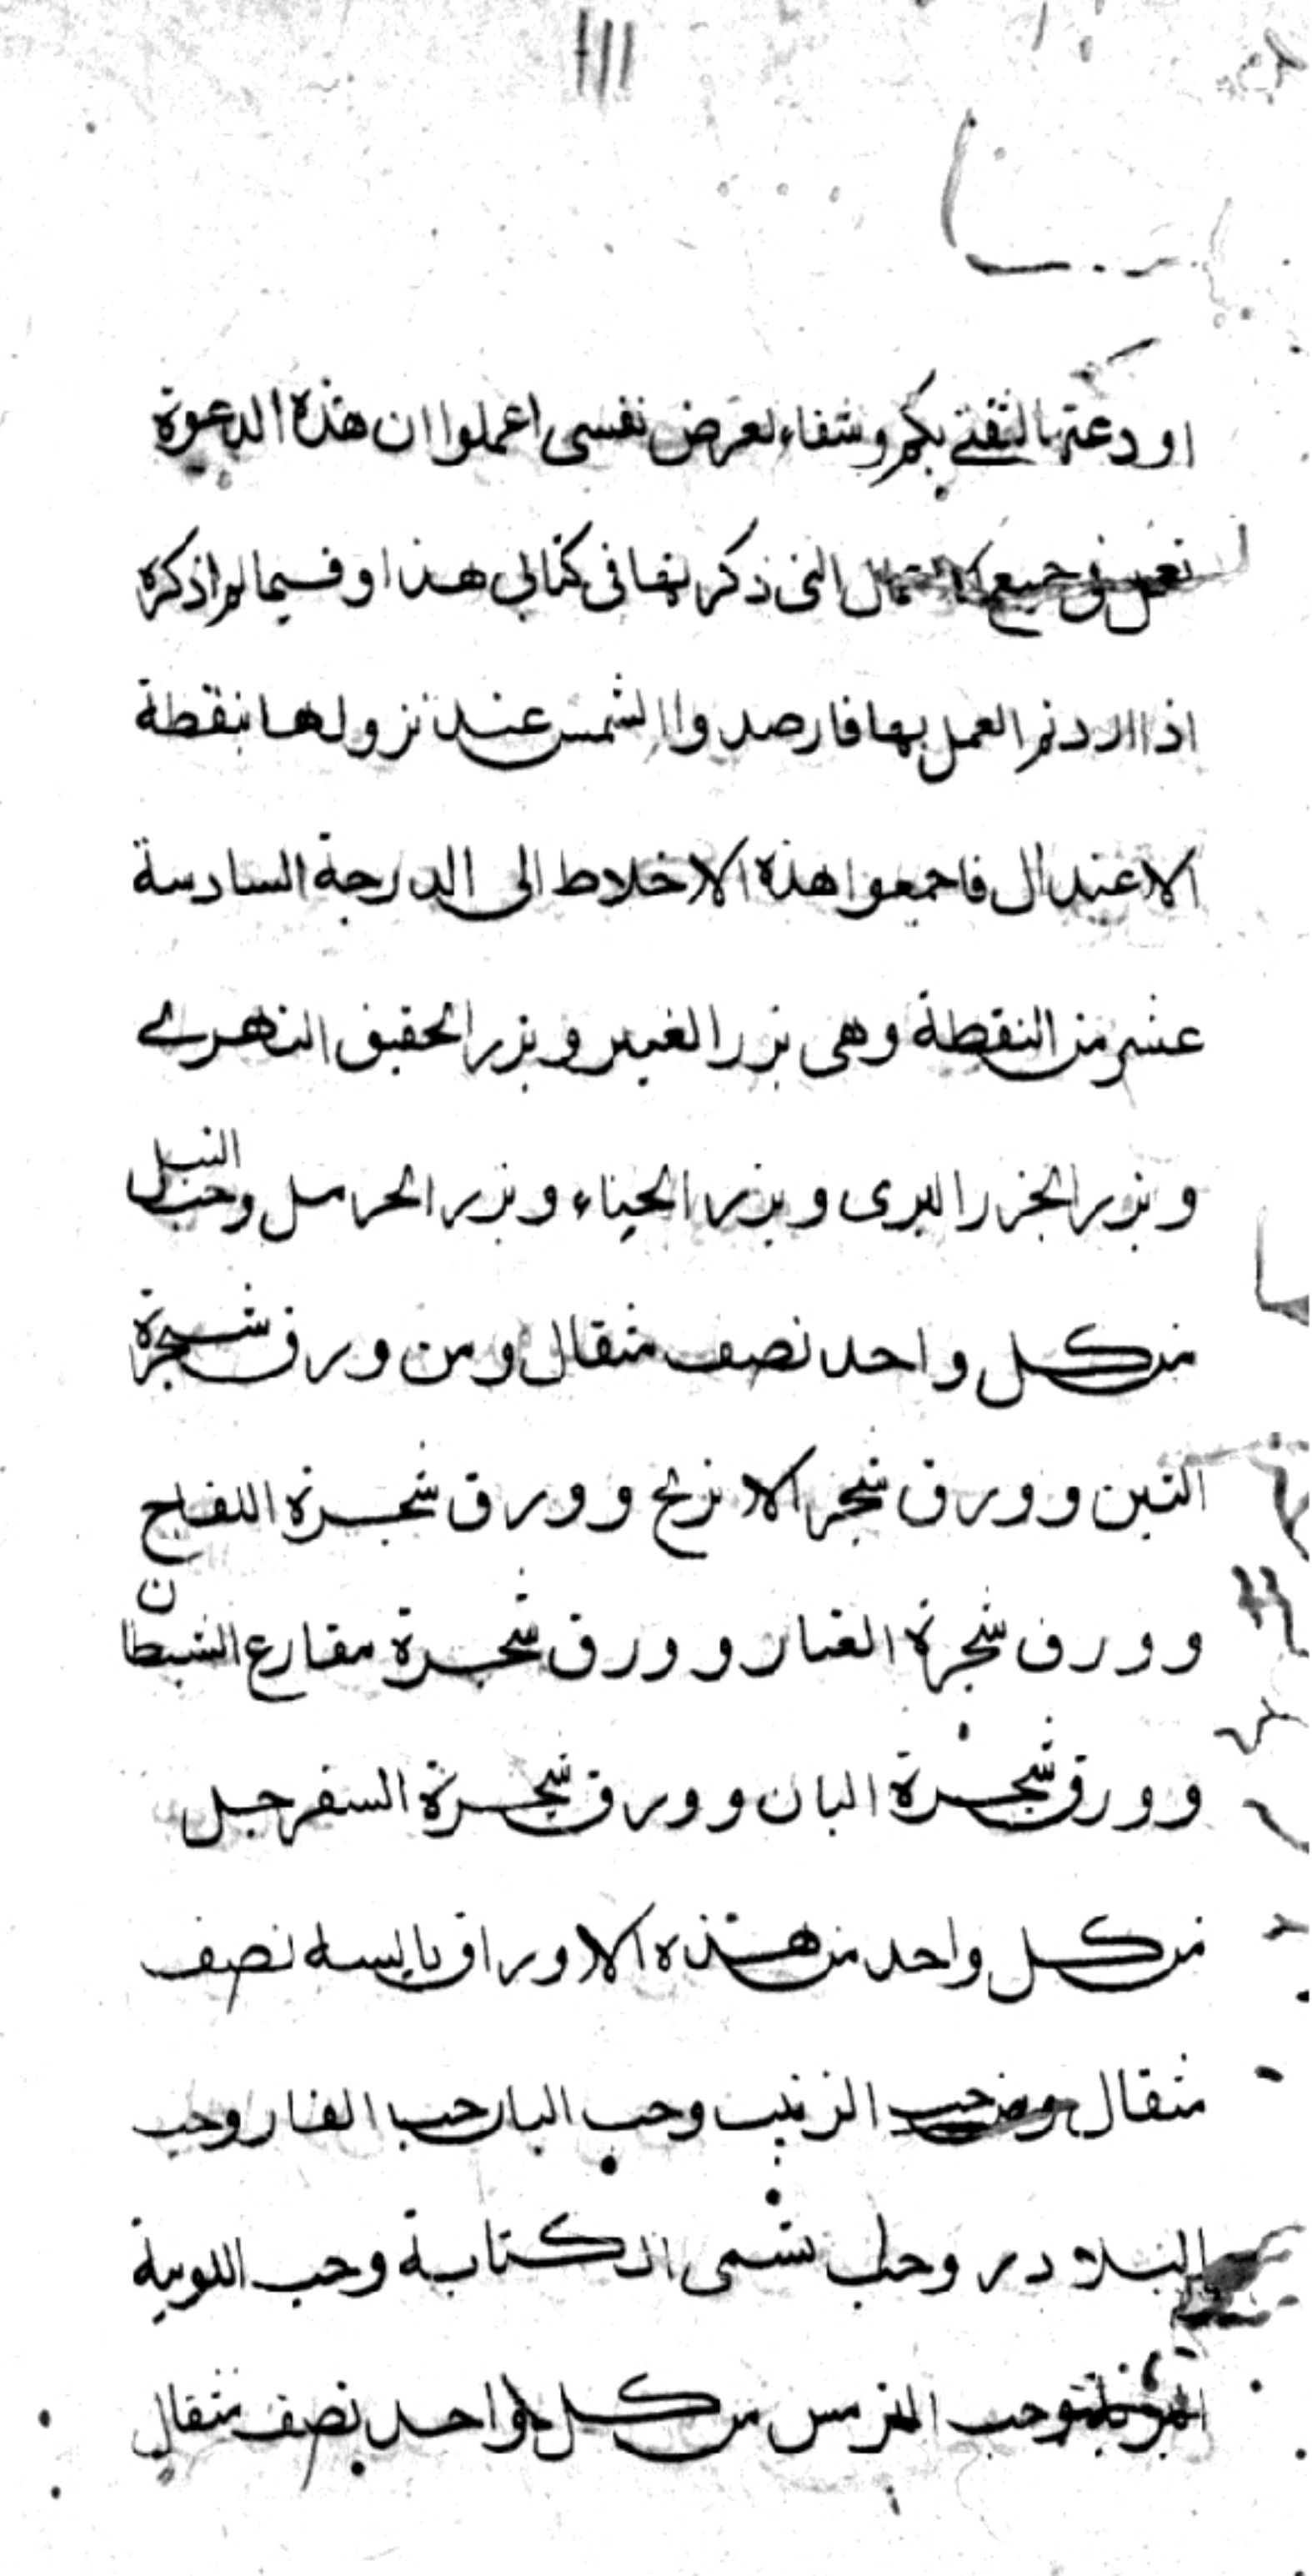 ١١١
اودعته بالثقتي بكم وشفاء لغرض نفسى اعملوا ان هذه الدعوة
تعمل فى جميع الاعمال التى ذكرتها فى كتابى هذا او فيما لم اذكره
اذا اردتم العمل بها فارصدوا الشمس عند نزولها بنقطة
الاعتدال فاجمعوا هذه الاخلاط الى الدرجة السادسة
عشر من النقطة وهى بزر الغبير وبزر الحقيق النهرى
وبزر الجزر البرى وبزر الحناء وبزر الحرمل وحب النيل
من كل واحد نصف مثقال ومن ورق شجرة
التين وورق شجر الاترنج وورق شجرة التفاح
وورق شجرة الغار وورق شجرة مقارع الشيطان
وورق شجرة البان وورق شجرة السفرجل
من كل واحد من هذه الاوراق يابسه نصف
مثقال ومن حب الزبيب وحب البان حب الغار وحب
البلادر وحب تسمى الكتابة وحب اللوبية
وحب الترمس من كل واحد نصف مثقال